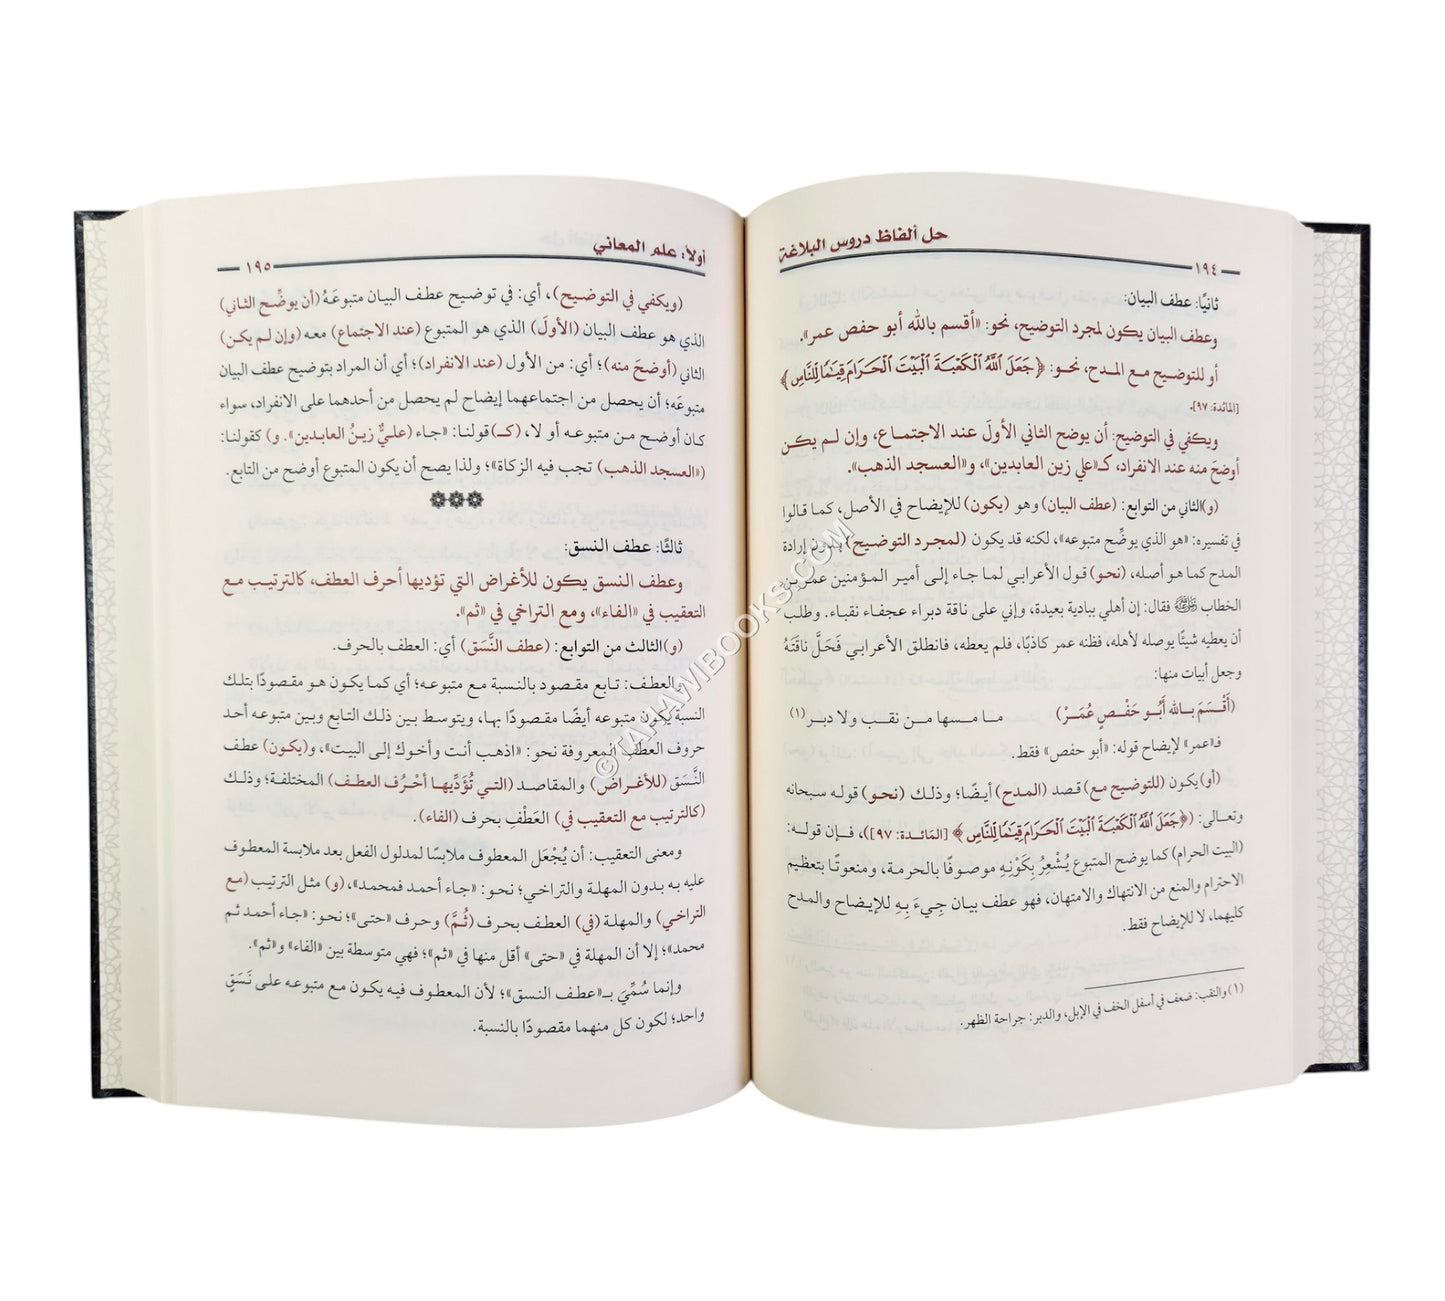 حل ألفاظ دروس البلاغة
١٩٤
ثانيًا: عطف البيان:
وعطف البيان يكون لمجرد التوضيح، نحو: «أقسم بالله أبو حفص عمر».
أو للتوضيح مع المدح، نحو: ﴿جَعَلَ ٱللَّهُ ٱلۡكَعۡبَةَ ٱلۡبَيۡتَ ٱلۡحَرَامَ قِيَٰمٗا لِّلنَّاسِ﴾
[المائدة: ٩٧].
ويكفي في التوضيح: أن يوضح الثاني الأولَ عند الاجتماع، وإن لم يكن
أوضحَ منه عند الانفراد، كـ«علي زين العابدين»، و«العسجد الذهب».
(و)الثاني من التوابع: (عطف البيان) وهو (يكون) للإيضاح في الأصل، كما قالوا
في تفسيره: «هو الذي يوضِّح متبوعه»، لكنه قد يكون (لمجرد التوضيح) بدون إرادة
المدح كما هو أصله، (نحو) قول الأعرابي لما جاء إلى أمير المؤمنين عمر بن
الخطاب رضي الله عنه فقال: إن أهلي ببادية بعيدة، وإني على ناقة دبراء عجفاء نقباء. وطلب
أن يعطيه شيئًا يوصله لأهله، فظنه عمر كاذبًا، فلم يعطه، فانطلق الأعرابي فَحَلَّ ناقتَهُ
وجعل أبيات منها:
(أَقْسَمَ بـالله أَبُـو حَفْـصٍ عُمَـرْ) مـا مـسها مـن نقـب ولا دبـر(١)
فـ«عمر» لإيضاح قوله: «أبو حفص» فقط.
(أو) يكون (للتوضيح مع) قصد (المدح) أيضًا؛ وذلك (نحو) قوله سبحانه
وتعالى: (﴿جَعَلَ ٱللَّهُ ٱلۡكَعۡبَةَ ٱلۡبَيۡتَ ٱلۡحَرَامَ قِيَٰمٗا لِّلنَّاسِ﴾ [المائدة: ٩٧])، فإن قوله:
(البيت الحرام) كما يوضح المتبوع يُشْعِرُ بِكَوْنِهِ موصوفًا بالحرمة، ومنعوتًا بتعظيم
الاحترام والمنع من الانتهاك والامتهان، فهو عطف بيان جِيءَ بِهِ للإيضاح والمدح
كليهما، لا للإيضاح فقط.
(١) والنقب: ضعف في أسفل الخف في الإبل، والدبر: جراحة الظهر.
أولًا: علم المعاني
١٩٥
(ويكفي في التوضيح)، أي: في توضيح عطف البيان متبوعَهُ (أن يوضِّح الثاني)
الذي هو عطف البيان (الأولَ) الذي هو المتبوع (عند الاجتماع) معه (وإن لم يكن)
الثاني (أوضحَ منه)؛ أي: من الأول (عند الانفراد)؛ أي أن المراد بتوضيح عطف البيان
متبوعَه؛ أن يحصل من اجتماعهما إيضاح لم يحصل من أحدهما على الانفراد، سواء
كان أوضح من متبوعه أو لا، (كـ) قولنا: «جاء (عليٌّ زينُ العابدين». و) كقولنا:
(«العسجد الذهب) تجب فيه الزكاة»؛ ولذا يصح أن يكون المتبوع أوضح من التابع.
ثالثًا: عطف النسق:
وعطف النسق يكون للأغراض التي تؤديها أحرف العطف، كالترتيب مع
التعقيب في «الفاء»، ومع التراخي في «ثم».
(و)الثالث من التوابع: (عطف النَّسَق) أي: العطف بالحرف.
والعطف: تابع مقصود بالنسبة مع متبوعه؛ أي كما يكون هو مقصودًا بتلك
النسبة يكون متبوعه أيضًا مقصودًا بها، ويتوسط بين ذلك التابع وبين متبوعه أحد
حروف العطف المعروفة نحو: «اذهب أنت وأخوك إلى البيت»، و(يكون) عطف
النَّسَق (للأغراض) والمقاصد (التي تُؤَدِّيها أحْرُف العطف) المختلفة؛ وذلك
(كالترتيب مع التعقيب في) العَطْفِ بحرف (الفاء).
ومعنى التعقيب: أن يُجْعَل المعطوف ملابسًا لمدلول الفعل بعد ملابسة المعطوف
عليه به بدون المهلة والتراخي؛ نحو: «جاء أحمد فمحمد»، (و) مثل الترتيب (مع
التراخي) والمهلة (في) العطف بحرف (ثُمَّ) وحرف «حتى»؛ نحو: «جاء أحمد ثم
محمد»؛ إلا أن المهلة في «حتى» أقل منها في «ثم»؛ فهي متوسطة بين «الفاء» و«ثم».
وإنما سُمِّيَ بـ«عطف النسق»؛ لأن المعطوف فيه يكون مع متبوعه على نَسَقٍ
واحد؛ لكون كل منهما مقصودًا بالنسبة.
©TAHAWIBOOKS.COM